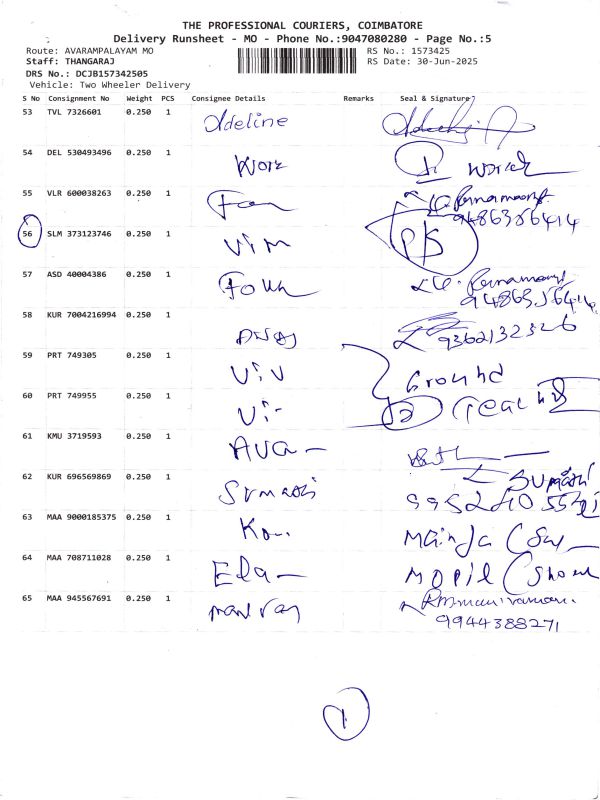 THE PROFESSIONAL COURIERS, COIMBATORE
Delivery Runsheet - MO - Phone No.:9047080280 - Page No.:5
Route: AVARAMPALAYAM MO RS No.: 1573425
Staff: THANGARAJ RS Date: 30-Jun-2025
DRS No.: DCJB157342505
Vehicle: Two Wheeler Delivery
S No Consignment No Weight PCS Consignee Details Remarks Seal & Signature
53 TVL 7326601 0.250 1 Adeline
54 DEL 530493496 0.250 1 Work
55 VLR 600038263 0.250 1
9486356414
56 SLM 373123746 0.250 1 Vim PK
57 ASD 40004386 0.250 1
58 KUR 7004216994 0.250 1 9362132326
59 PRT 749305 0.250 1 Viv Ground
60 PRT 749955 0.250 1 Vi-
61 KMU 3719593 0.250 1 AVa-
62 KUR 696569869 0.250 1 Sumathi
63 MAA 9000185375 0.250 1
64 MAA 708711028 0.250 1 Ela-
65 MAA 945567691 0.250 1
9944388271
1